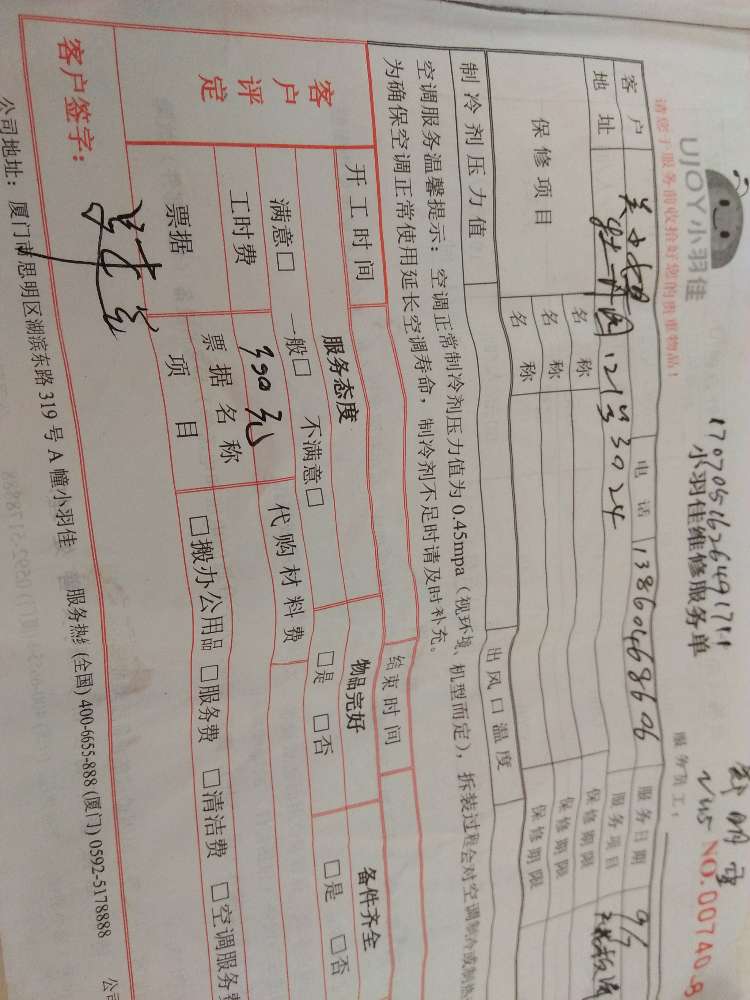 170705162649171
UJOY小羽佳
小羽佳维修服务单
NO.00740
请您于服务前收拾好您的贵重物品!
服务员工:
客户 吴小姐 电话 13860468606 服务日期 9/5
地址 牡丹园 3024 服务项目
保修项目
名称 保修期限
名称 保修期限
名称 保修期限
制冷剂压力值 出风口温度
空调服务温馨提示: 空调正常制冷剂压力值为0.45mpa(视环境、机型而定), 拆装过程会对空调制冷或制热
为确保空调正常使用延长空调寿命, 制冷剂不足时请及时补充。
开工时间 结束时间
客户评定
服务态度 物品完好 备件齐全
满意□ 一般□ 不满意□ □是 □否 □是 □否
工时费 390元 代购材料费
票据 票据名称
项目 □搬办公用品 □服务费 □清洁费 □空调服务费
客户签字:
公司地址: 厦门市思明区湖滨东路319号A幢小羽佳 服务热 (全国) 400-6655-888 (厦门) 0592-5178888